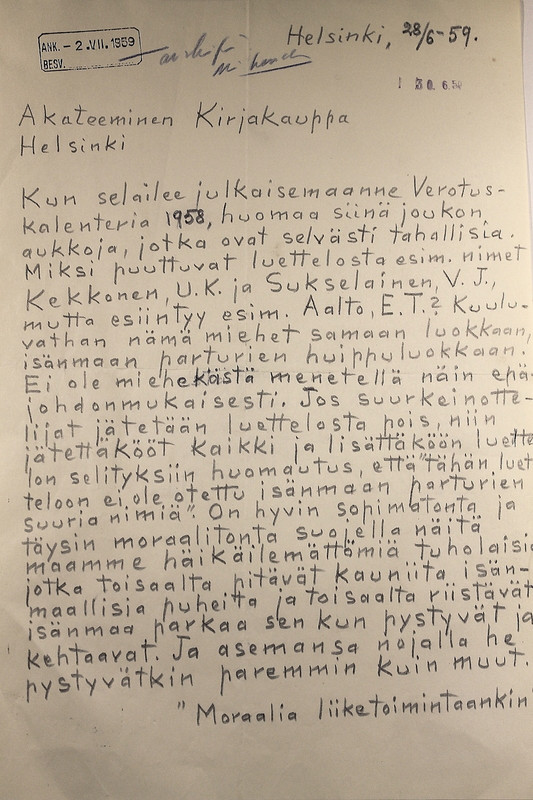 Helsinki, 28/6-59.
ANK. - 2. VII. 1959
BESV.
30. 6. 59
Akateeminen Kirjakauppa
Helsinki
Kun selailee julkaisemaanne Verotus-
kalenteria 1958, huomaa siinä joukon
aukkoja, jotka ovat selvästi tahallisia.
Miksi puuttuvat luettelosta esim. nimet
Kekkonen, U.K. ja Sukselainen, V.J.,
mutta esiintyy esim. Aalto, E.T.? Kuulu-
vathan nämä miehet samaan luokkaan,
isänmaan parturien huippuluokkaan.
Ei ole miehekästä menetellä näin epä-
lohdonmukaisesti. Jos suurkeinotte-
lijat jätetään luettelosta pois, niin
jätettäkööt kaikki ja lisättäköön luette
lon selityksiin huomautus, että "tähän luet
teloon ei ole otettu isänmaan parturien
suuria nimiä". On hyvin sopimatonta ja
täysin moraalitonta suojella näitä
maamme häikäilemättömiä tuholaisia
jotka toisaalta pitävät kauniita isän-
maallisia puheita ja toisaalta riistävät
isänmaa parkaa sen kun pystyvät ja
kehtaavat. Ja asemansa nojalla he
pystyvätkin paremmin kuin muut.
"Moraalia liiketoimintaankin"